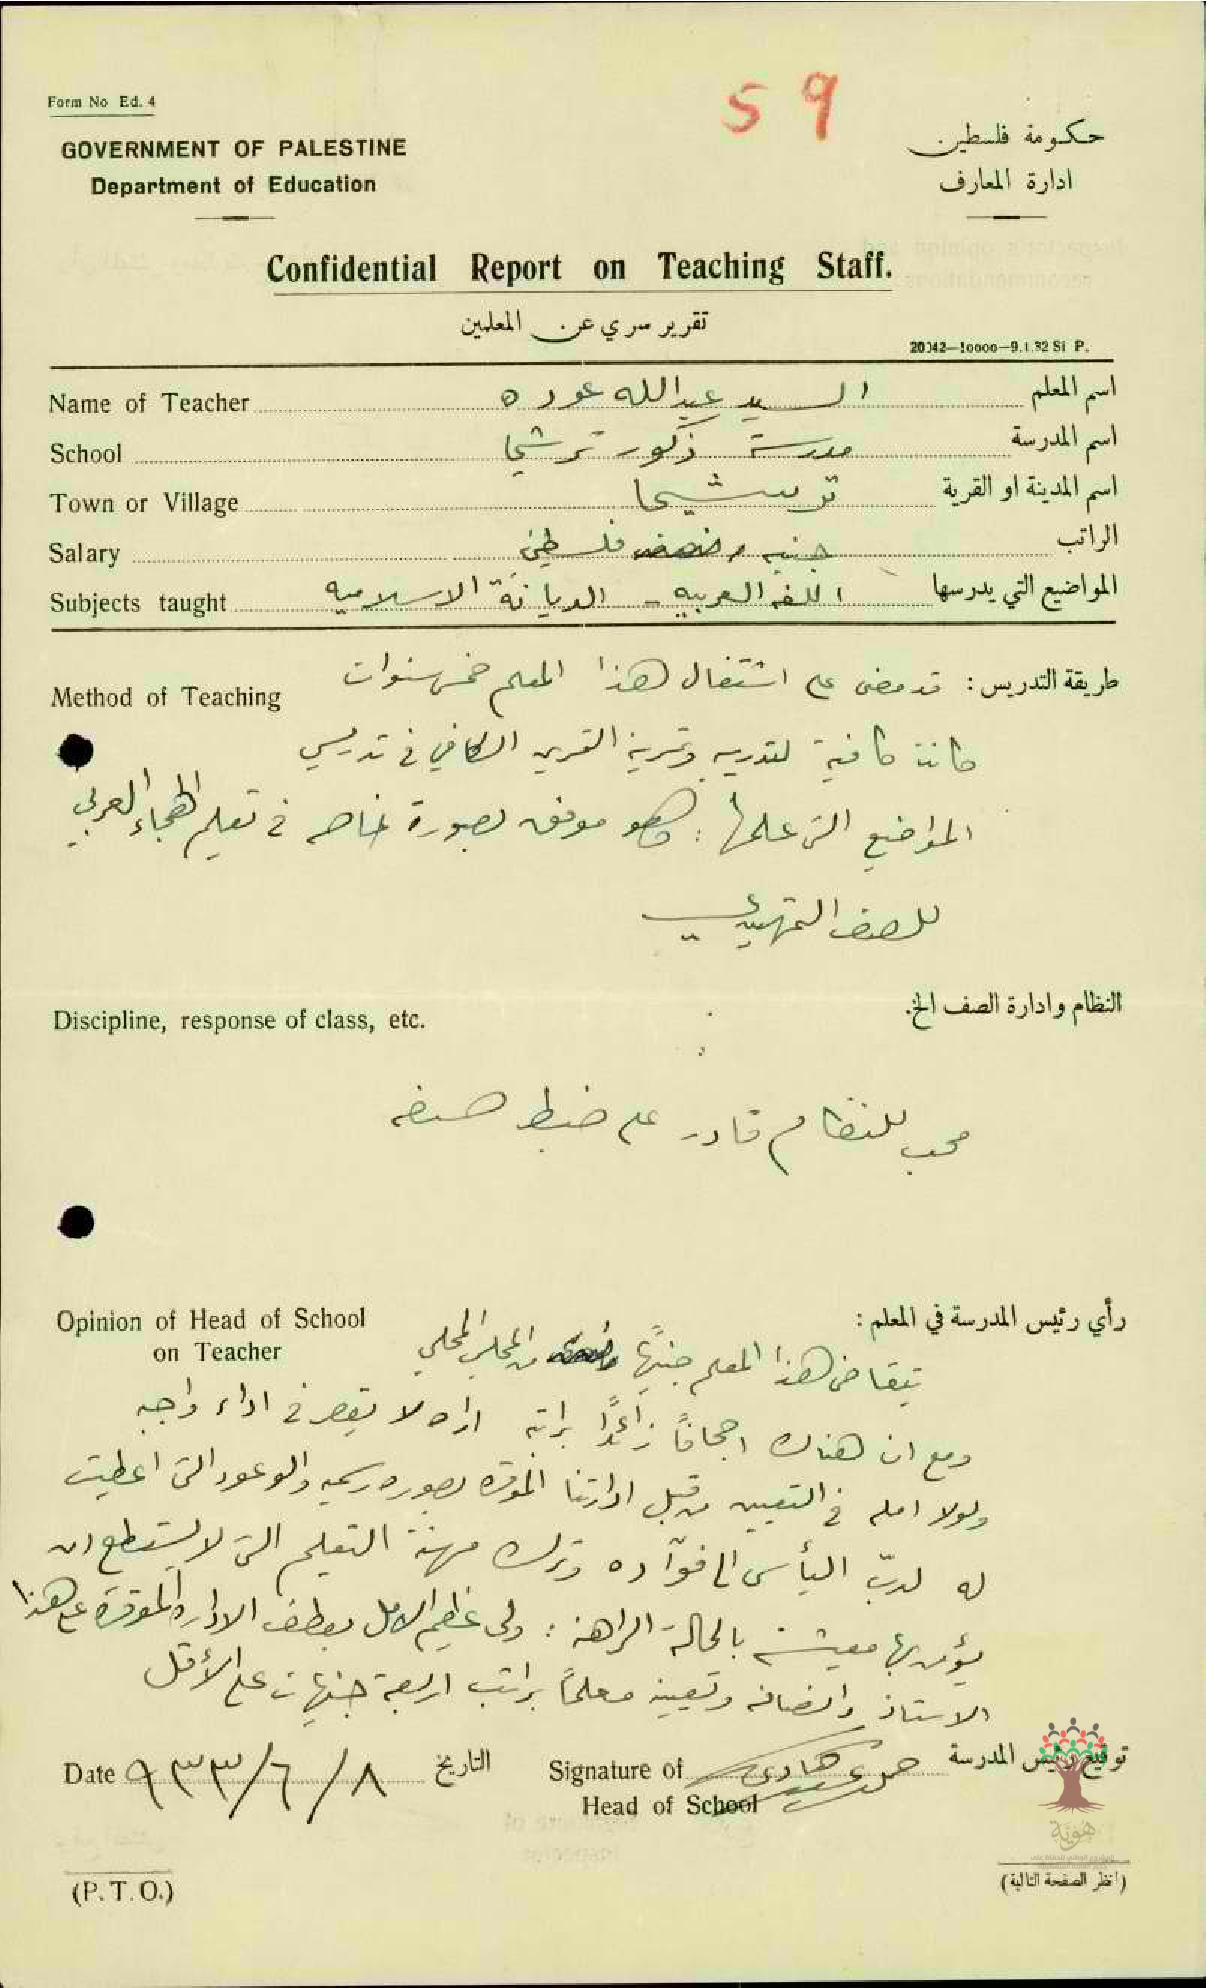 Form No Ed. 4
59
GOVERNMENT OF PALESTINE
Department of Education
حكومة فلسطين
ادارة المعارف
Confidential Report on Teaching Staff.
تقرير سري عن المعلمين
20042—10000—9.1.32 SI P.
Name of Teacher السيد عبدالله عوده اسم المعلم
School مدرسة ذكور ترشيحا اسم المدرسة
Town or Village ترشيحا اسم المدينة او القرية
Salary جنيه فلسطيني الراتب
Subjects taught اللغه العربيه - الديانة الاسلاميه المواضيع التي يدرسها
Method of Teaching
طريقة التدريس : قد مضى على اشتغال هذا المعلم خمس سنوات
كانت كافية لتدريبه وتمرينه التمرين الكافي في تدريس
المواضيع التي علمها : وهو موفق بصورة خاصه في تعليم الهجاء العربي
للصف التمهيدي
Discipline, response of class, etc. النظام وادارة الصف الخ.
محب للنظام قادر على ضبط صفه
Opinion of Head of School
on Teacher
رأي رئيس المدرسة في المعلم :
يتقاضى هذا المعلم جنيهًا من المجلس المحلي
ومع ان هناك اجحافًا زائدًا براتبه اراه لا يقصر في اداء واجبه
ولولا امله في التعيين من قبل ادارتنا الموقره بصوره رسميه والوعود التي اعطيت
له لدبّ اليأس الى فؤاده وترك مهنة التعليم التي لا يستطيع ان
يؤمن بها معيشته بالحالة الراهنة : ولي عظيم الامل بعطف الادارة الموقرة على هذا
الاستاذ وانصافه وتعيينه معلمًا براتب اربعة جنيهات على الأقل
Date ٨/٦/٩٣٣ التاريخ
Signature of
Head of School
توقيع رئيس المدرسة
هوية
(P. T. O.)
(انظر الصفحة التالية)